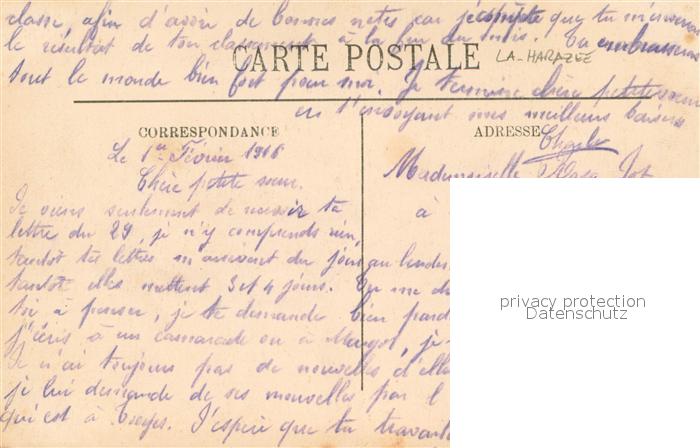 classe, afin d'avoir de bonnes notes car j'compte que tu m'enverras
le résultat de ton classement à la fin du mois. Tu embrasseras
CARTE POSTALE
LA-HARAZEE
tout le monde bien fort pour moi. Je termine chère petite sœur
en t'envoyant mes meilleurs baisers
CORRESPONDANCE
ADRESSE
Charles
Le 1er Février 1916
Chère petite sœur.
Mademoiselle
à
Je viens seulement de recevoir ta
lettre du 29, je n'y comprends rien,
tantôt tes lettres m'arrivent du jour au lende
tantôt elles mettent 3 et 4 jours. Tu me
toi à penser, je te demande bien pard
j'écris à un camarade ou à Margot, je
Je n'ai toujours pas de nouvelles d'elle
je lui demande de ses nouvelles par l
qui est à Troyes. J'espère que tu travaill
privacy protection
Datenschutz